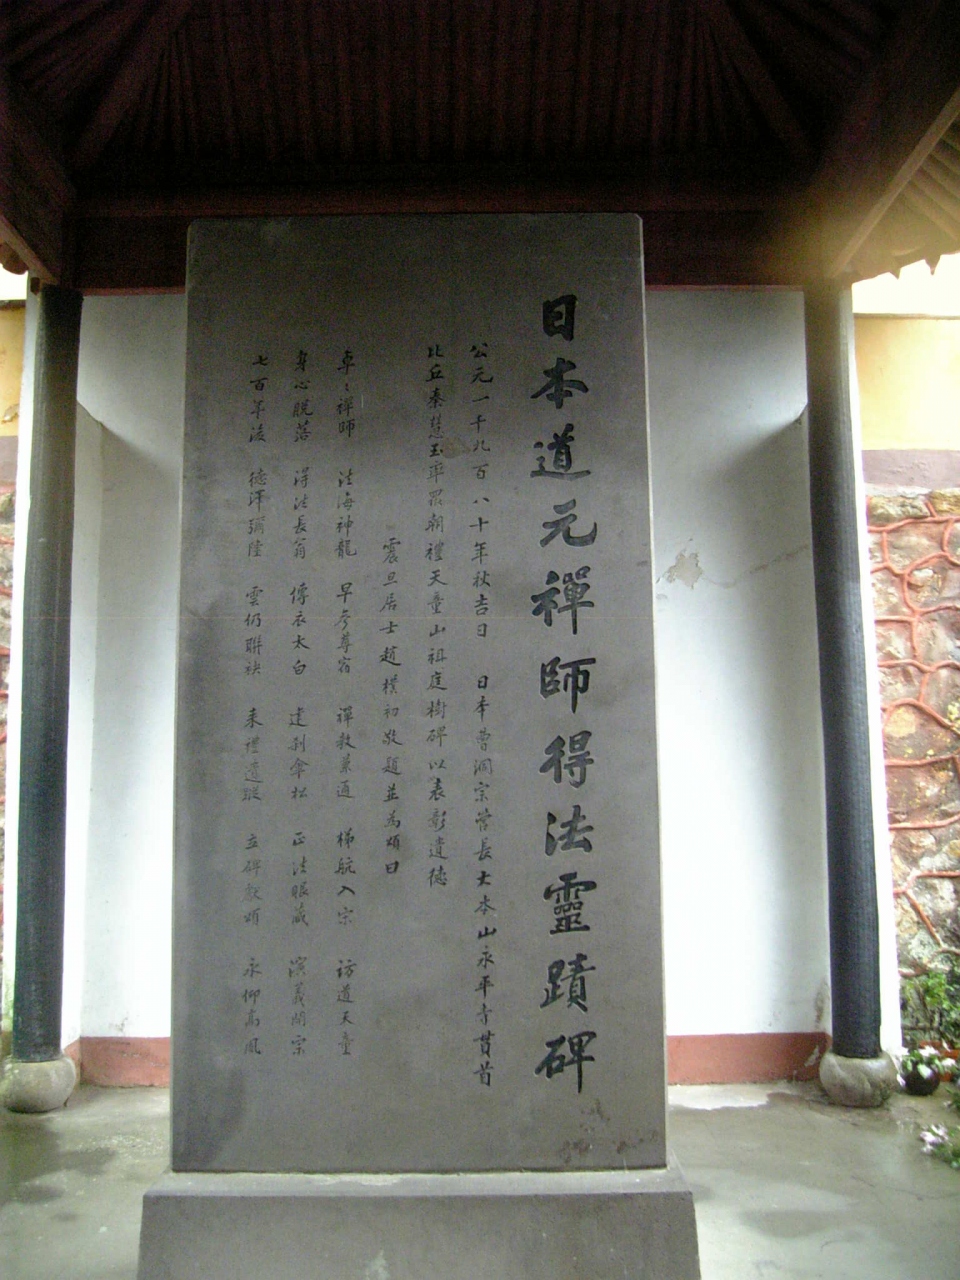 日本道元禪師得法靈蹟碑
公元一千九百八十年秋吉日 日本曹洞宗管長大本山永平寺貫首
比丘秦慧玉率眾朝禮天童山祖庭樹碑以表彰遺德
震旦居士趙樸初敬題並為頌曰
卓〻禪師 法海神龍 早參尊宿 禪教兼通 梯航入宗 訪道天童
身心脫落 得法長翁 傳衣太白 建刹傘松 正法眼藏 演義開宗
七百年後 德澤彌隆 雲仍聯袂 来禮遺蹤 立碑獻頌 永仰高風